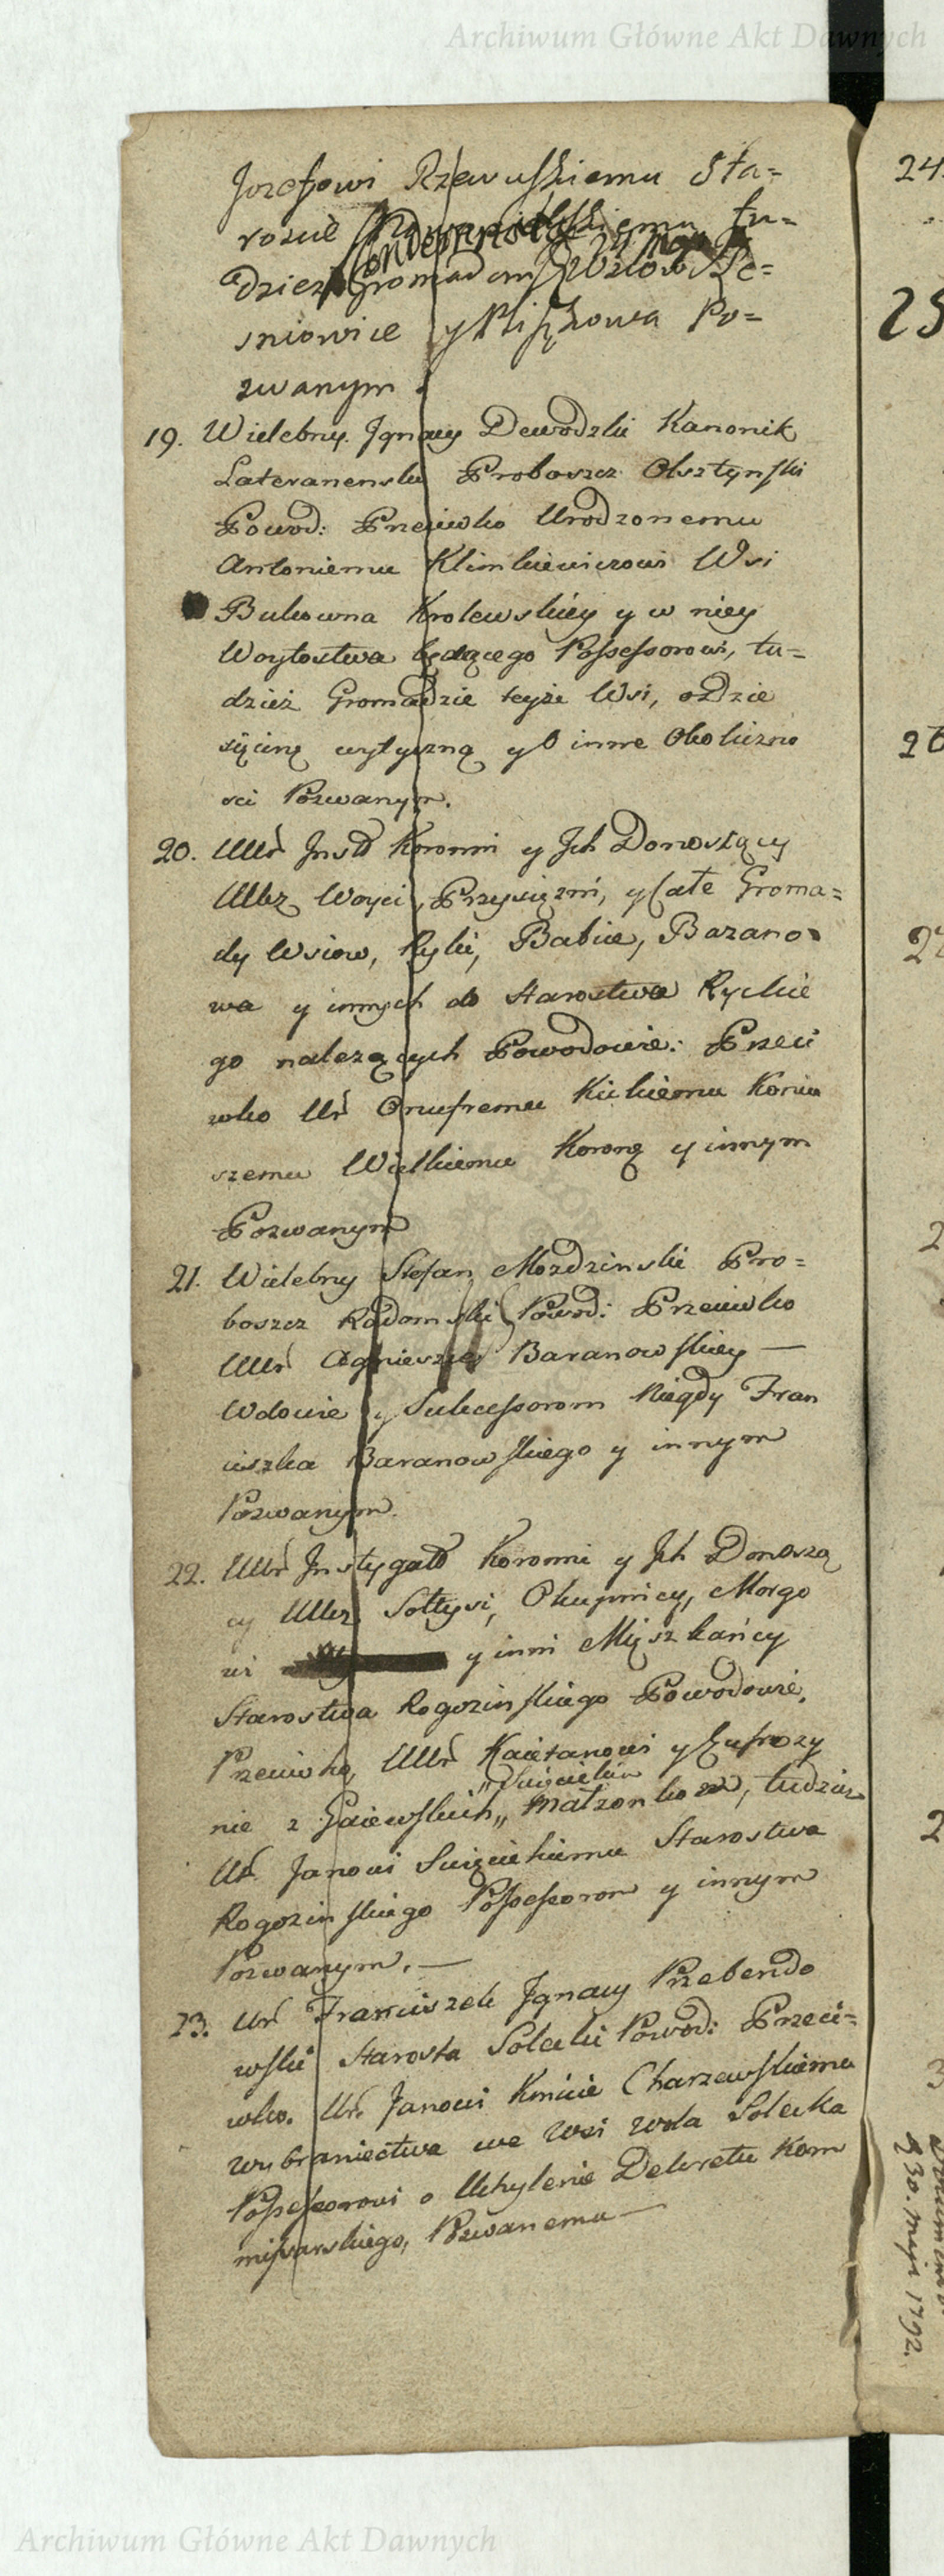 Archiwum Główne Akt Dawnych
Jozefowi Rzewuskiemu Sta=
roscie Nowomieyskiemu tu=
dziesz Gromadom Wsiow Le=
sniowice y Pliszkowa Po=
zwanym.
19. Wielebny Jgnacy Dewodzki Kanonik
Lateranenski Proboszcz Olsztynski
Powod: Przeciwko Urodzonemu
Antoniemu Klimkiewiczowi Wsi
Bukowna Krolewskiey y w niey
Woytostwa będącego Possessorowi, tu=
dzież Gromadzie teyże Wsi, o Dzie
sięcinę wytyczną y o inne Okoliczno
sci Pozwanym.
20. UUr Jnst Koronni y Jch Donoszący
UUcz Woyci, Przysięzni, y Całe Groma=
dy Wsiow, Ryki, Babice, Bazano=
wa y innych do Starostwa Ryckie
go nalezących Powodowie: Przeci
wko Ur Onufremu Kickiemu Koniu
szemu Wielkiemu Koronę y innym
Pozwanym
21. Wielebny Stefan Mozdzinski Pro=
boszcz Radomski Powod: Przeciwko
UUr Agnieszce Baranowskiey —
Wdowie y Sukcessorom Niegdy Fran
ciszka Baranowskiego y innym
Pozwanym.
22. UUr Jnstygato Koronni y Jch Donoszą
cy UUcz Sołtysi, Okupnicy, Morgo
wi y inni Mięszkańcy
Starostwa Rogozinskiego Powodowie,
Przeciwko, UUr Kaietanowi y Eufrozy
nie z Gaiewskich „ Swięcickim
„ Małzonkom, tudziesz
Ur Janowi Swięcickiemu Starostwa
Rogozinskiego Possessorom y innym
Pozwanym. —
23. Ur Franciszek Jgnacy Przebendo
wski Starosta Solecki Powod: Przeci=
wko. Ur. Janowi Kmicie Charzewskiemu
wybraniectwa we Wsi Wola Solecka
Possessorowi o Uchylenie Dekretu Kom
missarskiego, Pozwanemu —
24.
25
26
2
2
2
3
30. Maji 1792.
Archiwum Główne Akt Dawnych